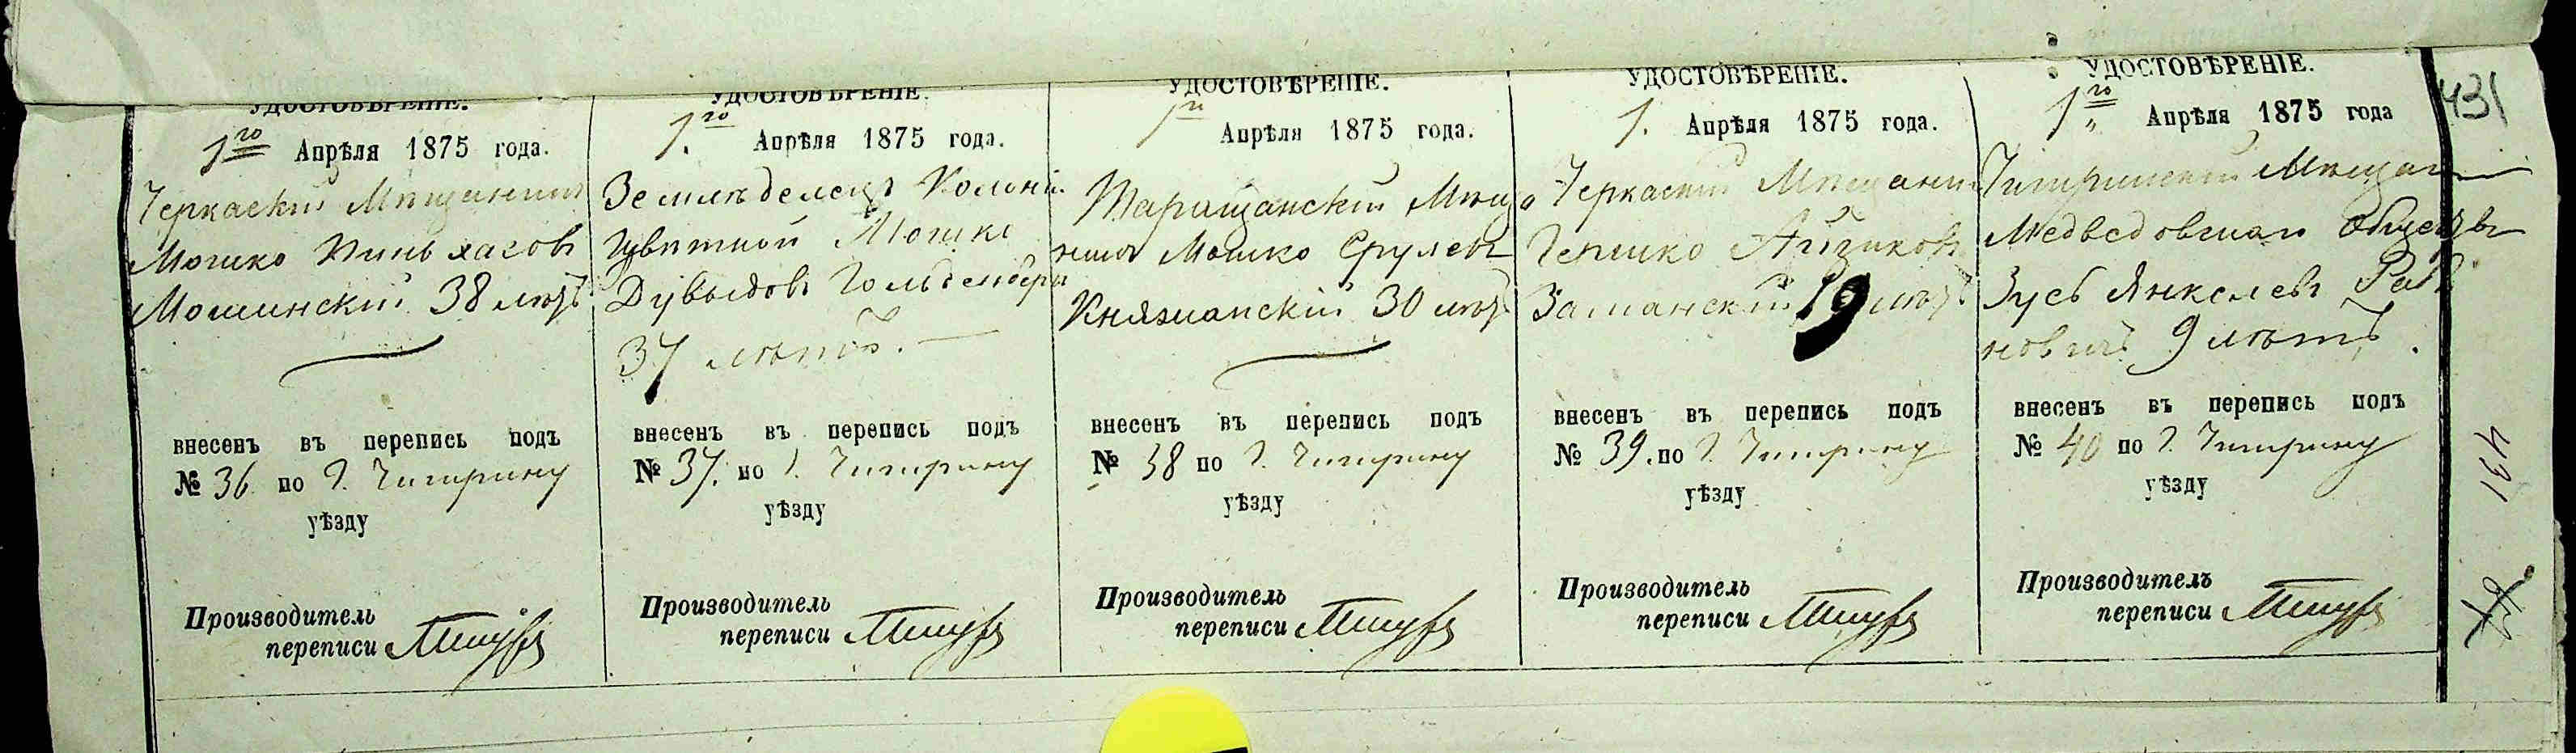 УДОСТОВѢРЕНІЕ.
1го Апрѣля 1875 года.
Черкаский Мѣщанинъ
Мошко Пиньхасовъ
Мошинский 38 лѣтъ
внесенъ въ перепись подъ
№ 36 по г. Чигирину
уѣзду
Производитель
переписи
УДОСТОВѢРЕНІЕ.
1.го Апрѣля 1875 года.
Земледелецъ Колоніи
Цвѣтной Мошко
Дувыдовъ Гольденберъ
37 лѣтъ.
внесенъ въ перепись подъ
№ 37. по г. Чигирину
уѣзду
Производитель
переписи
УДОСТОВѢРЕНІЕ.
1го Апрѣля 1875 года.
Таращанскій Мѣща
нинъ Мошко Срулевъ
Княжанскій 30 лѣтъ
внесенъ въ перепись подъ
№ 38 по г. Чигирину
уѣзду
Производитель
переписи
УДОСТОВѢРЕНІЕ.
1. Апрѣля 1875 года.
Черкаский Мѣщанин
Гершко Айзиковъ
19 лѣтъ
внесенъ въ перепись подъ
№ 39. по г. Чигирину
уѣзду
Производитель
переписи
УДОСТОВѢРЕНІЕ.
1го Апрѣля 1875 года
Чигиринский Мѣщан
Медведовскаго Общества
Зусь Янкелевъ Раб
новичъ 9 лѣтъ.
внесенъ въ перепись подъ
№ 40 по г. Чигирину
уѣзду
Производитель
переписи
431
431